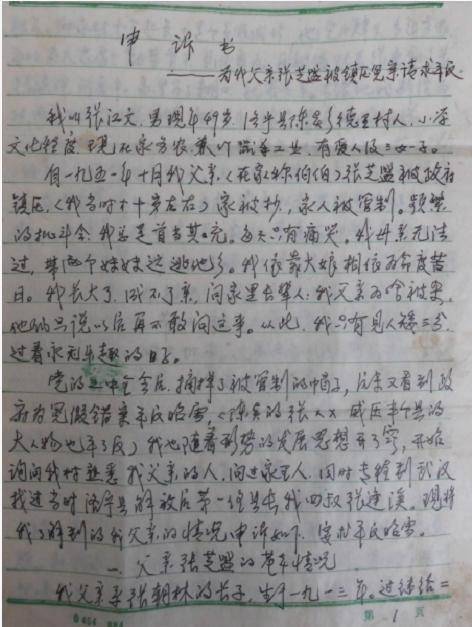 申诉书
——为我父亲张芝盟被镇压冤案请求平反
我叫张江文,男现年49岁,洛宁县陈吴乡德里村人,小学
文化程度,现在家务农,兼作
自一九五一年十月我父亲(在家称伯伯)张芝盟被政府
镇压,(我当时才十岁左右)家被抄,家人被管制。频繁
的批斗会,我总是首当其冲。每天只有痛哭。我母亲无法
过,带两个妹妹这逃他乡。我依靠大娘相依为命度苦
日。我长大了,成不了亲,问家里长辈人:我父亲为啥被害,
他们只说以后再不敢问这事。从此,我只有见人矮三分,
过着永无乐趣的日子。
党的三中全会后,摘掉了被管制的帽子,后来又看到政
府为冤假错案平反昭雪,(陈吴的张××
大人物也平了反)我也随着形势的发展思想开了窍,开始
询问我村熟悉我父亲的人,问过家里人,同时专程到武汉
找过当时洛宁县解放后第一任县长我四叔张建溪。现将
我了解到的我父亲的情况申诉如下,望求平反昭雪。
一、父亲张芝盟的革命情况
我父亲系张朝林的长子,生于一九一三年。过继给二
第1页